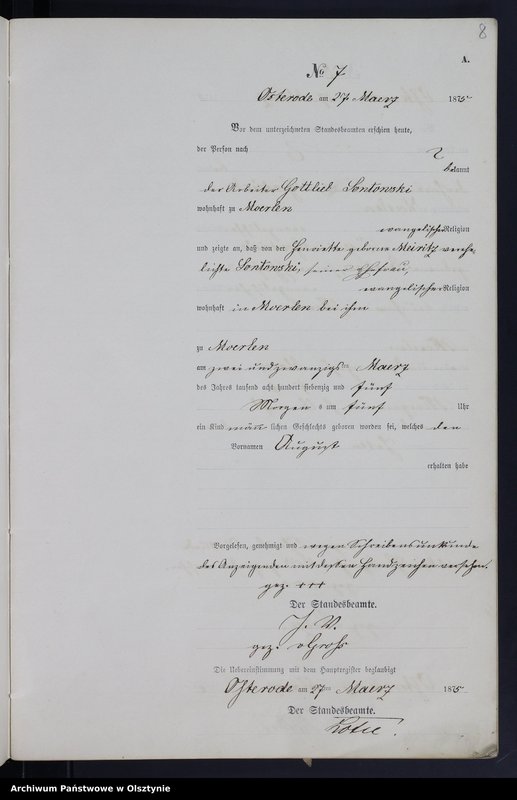 8
A.
No 7.
Osterode am 27 Maerz 1875
Vor dem unterzeichneten Standesbeamten erschien heute,
der Person nach
bekannt
der Arbeiter Gottlieb Sontowski
wohnhaft zu Moerlen
evangelischer Religion
und zeigte an, daß von der Henriette geborene Meiritz verehe-
lichte Sontowski, seiner Ehefrau,
evangelischer Religion
wohnhaft in Moerlen bei ihm
zu Moerlen
am zwei und zwanzigsten Maerz
des Jahres tausend acht hundert siebenzig und fünf
Morgens um fünf Uhr
ein Kind männlichen Geschlechts geboren worden sei, welches den
Vornamen August
erhalten habe
Vorgelesen, genehmigt und wegen Schreibensunkunde
des Anzeigenden mit dessen Handzeichen versehen.
gez. +++
Der Standesbeamte.
J. V.
gez.
Die Uebereinstimmung mit dem Hauptregister beglaubigt
Osterode am 27ten Maerz 1875
Der Standesbeamte.
Archiwum Państwowe w Olsztynie